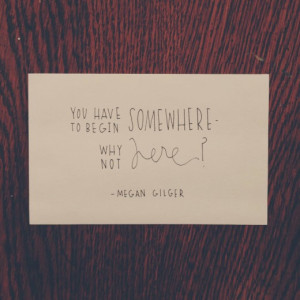 YOU HAVE TO BEGIN SOMEWHERE-
WHY NOT here?
-MEGAN GILGER